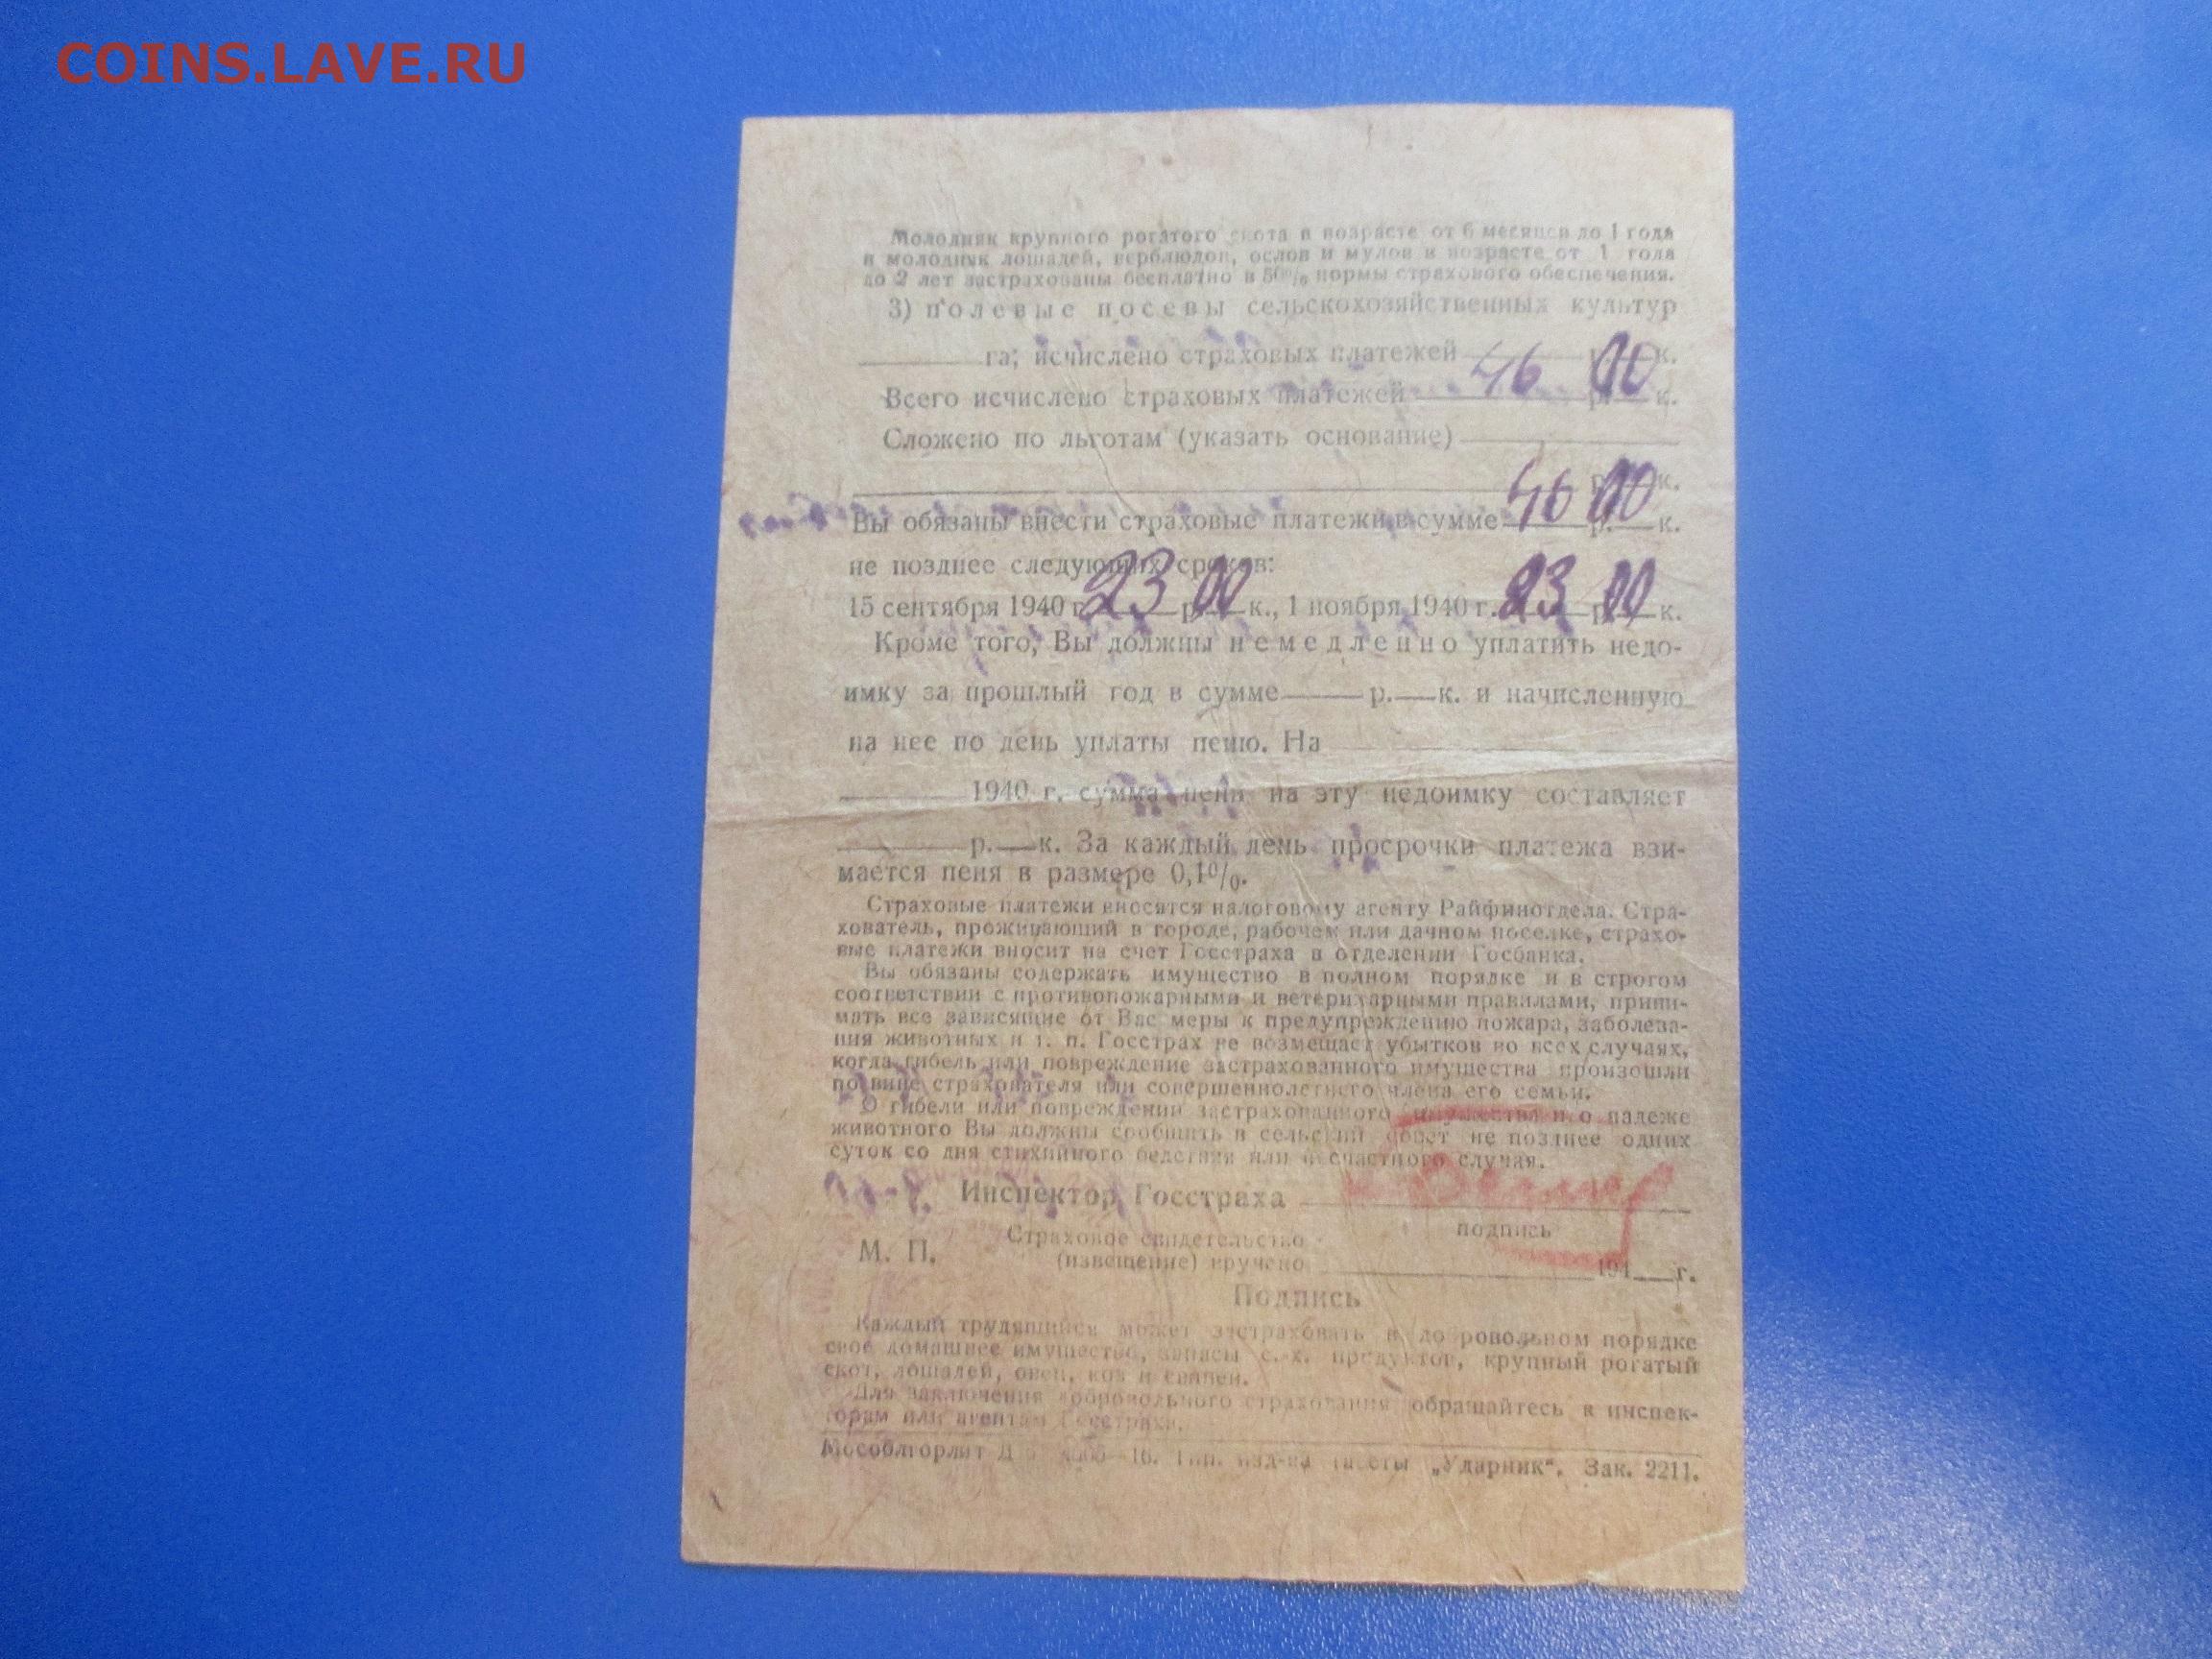 COINS.LAVE.RU
Молодняк крупного рогатого скота в возрасте от 6 месяцев до 1 года
и молодняк лошадей, верблюдов, ослов и мулов в возрасте от 1 года
до 2 лет застрахованы бесплатно в 50% нормы страхового обеспечения.
3) полевые посевы сельскохозяйственных культур
га; исчислено страховых платежей р. к.
Всего исчислено страховых платежей 46 р. 00 к.
Сложено по льготам (указать основание)
р. к.
Вы обязаны внести страховые платежи в сумме 46 р. 00 к.
не позднее следующих сроков:
15 сентября 1940 г. 23 р. 00 к., 1 ноября 1940 г. 23 р. 00 к.
Кроме того, Вы должны немедленно уплатить недо-
имку за прошлый год в сумме р. к. и начисленную
на нее по день уплаты пеню. На
1940 г. сумма пени на эту недоимку составляет
р. к. За каждый день просрочки платежа взи-
мается пеня в размере 0,1%.
Страховые платежи вносятся налоговому агенту Райфинотдела. Стра-
хователь, проживающий в городе, рабочем или дачном поселке, страхо-
вые платежи вносит на счет Госстраха в отделении Госбанка.
Вы обязаны содержать имущество в полном порядке и в строгом
соответствии с противопожарными и ветеринарными правилами, прини-
мать все зависящие от Вас меры к предупреждению пожара, заболева-
ния животных и т. п. Госстрах не возмещает убытков во всех случаях,
когда гибель или повреждение застрахованного имущества произошли
по вине страхователя или совершеннолетнего члена его семьи.
О гибели или повреждении застрахованного имущества и о падеже
животного Вы должны сообщить в сельский совет не позднее одних
суток со дня стихийного бедствия или несчастного случая.
Инспектор Госстраха
подпись
М. П. Страховое свидетельство
(извещение) вручено 194 г.
Подпись
Каждый трудящийся может застраховать в добровольном порядке
свое домашнее имущество, запасы с.-х. продуктов, крупный рогатый
скот, лошадей, овец, коз и свиней.
Для заключения добровольного страхования обращайтесь к инспек-
торам или агентам Госстраха.
Мособлгорлит Тип. изд-ва газеты „Ударник“. Зак. 2211.